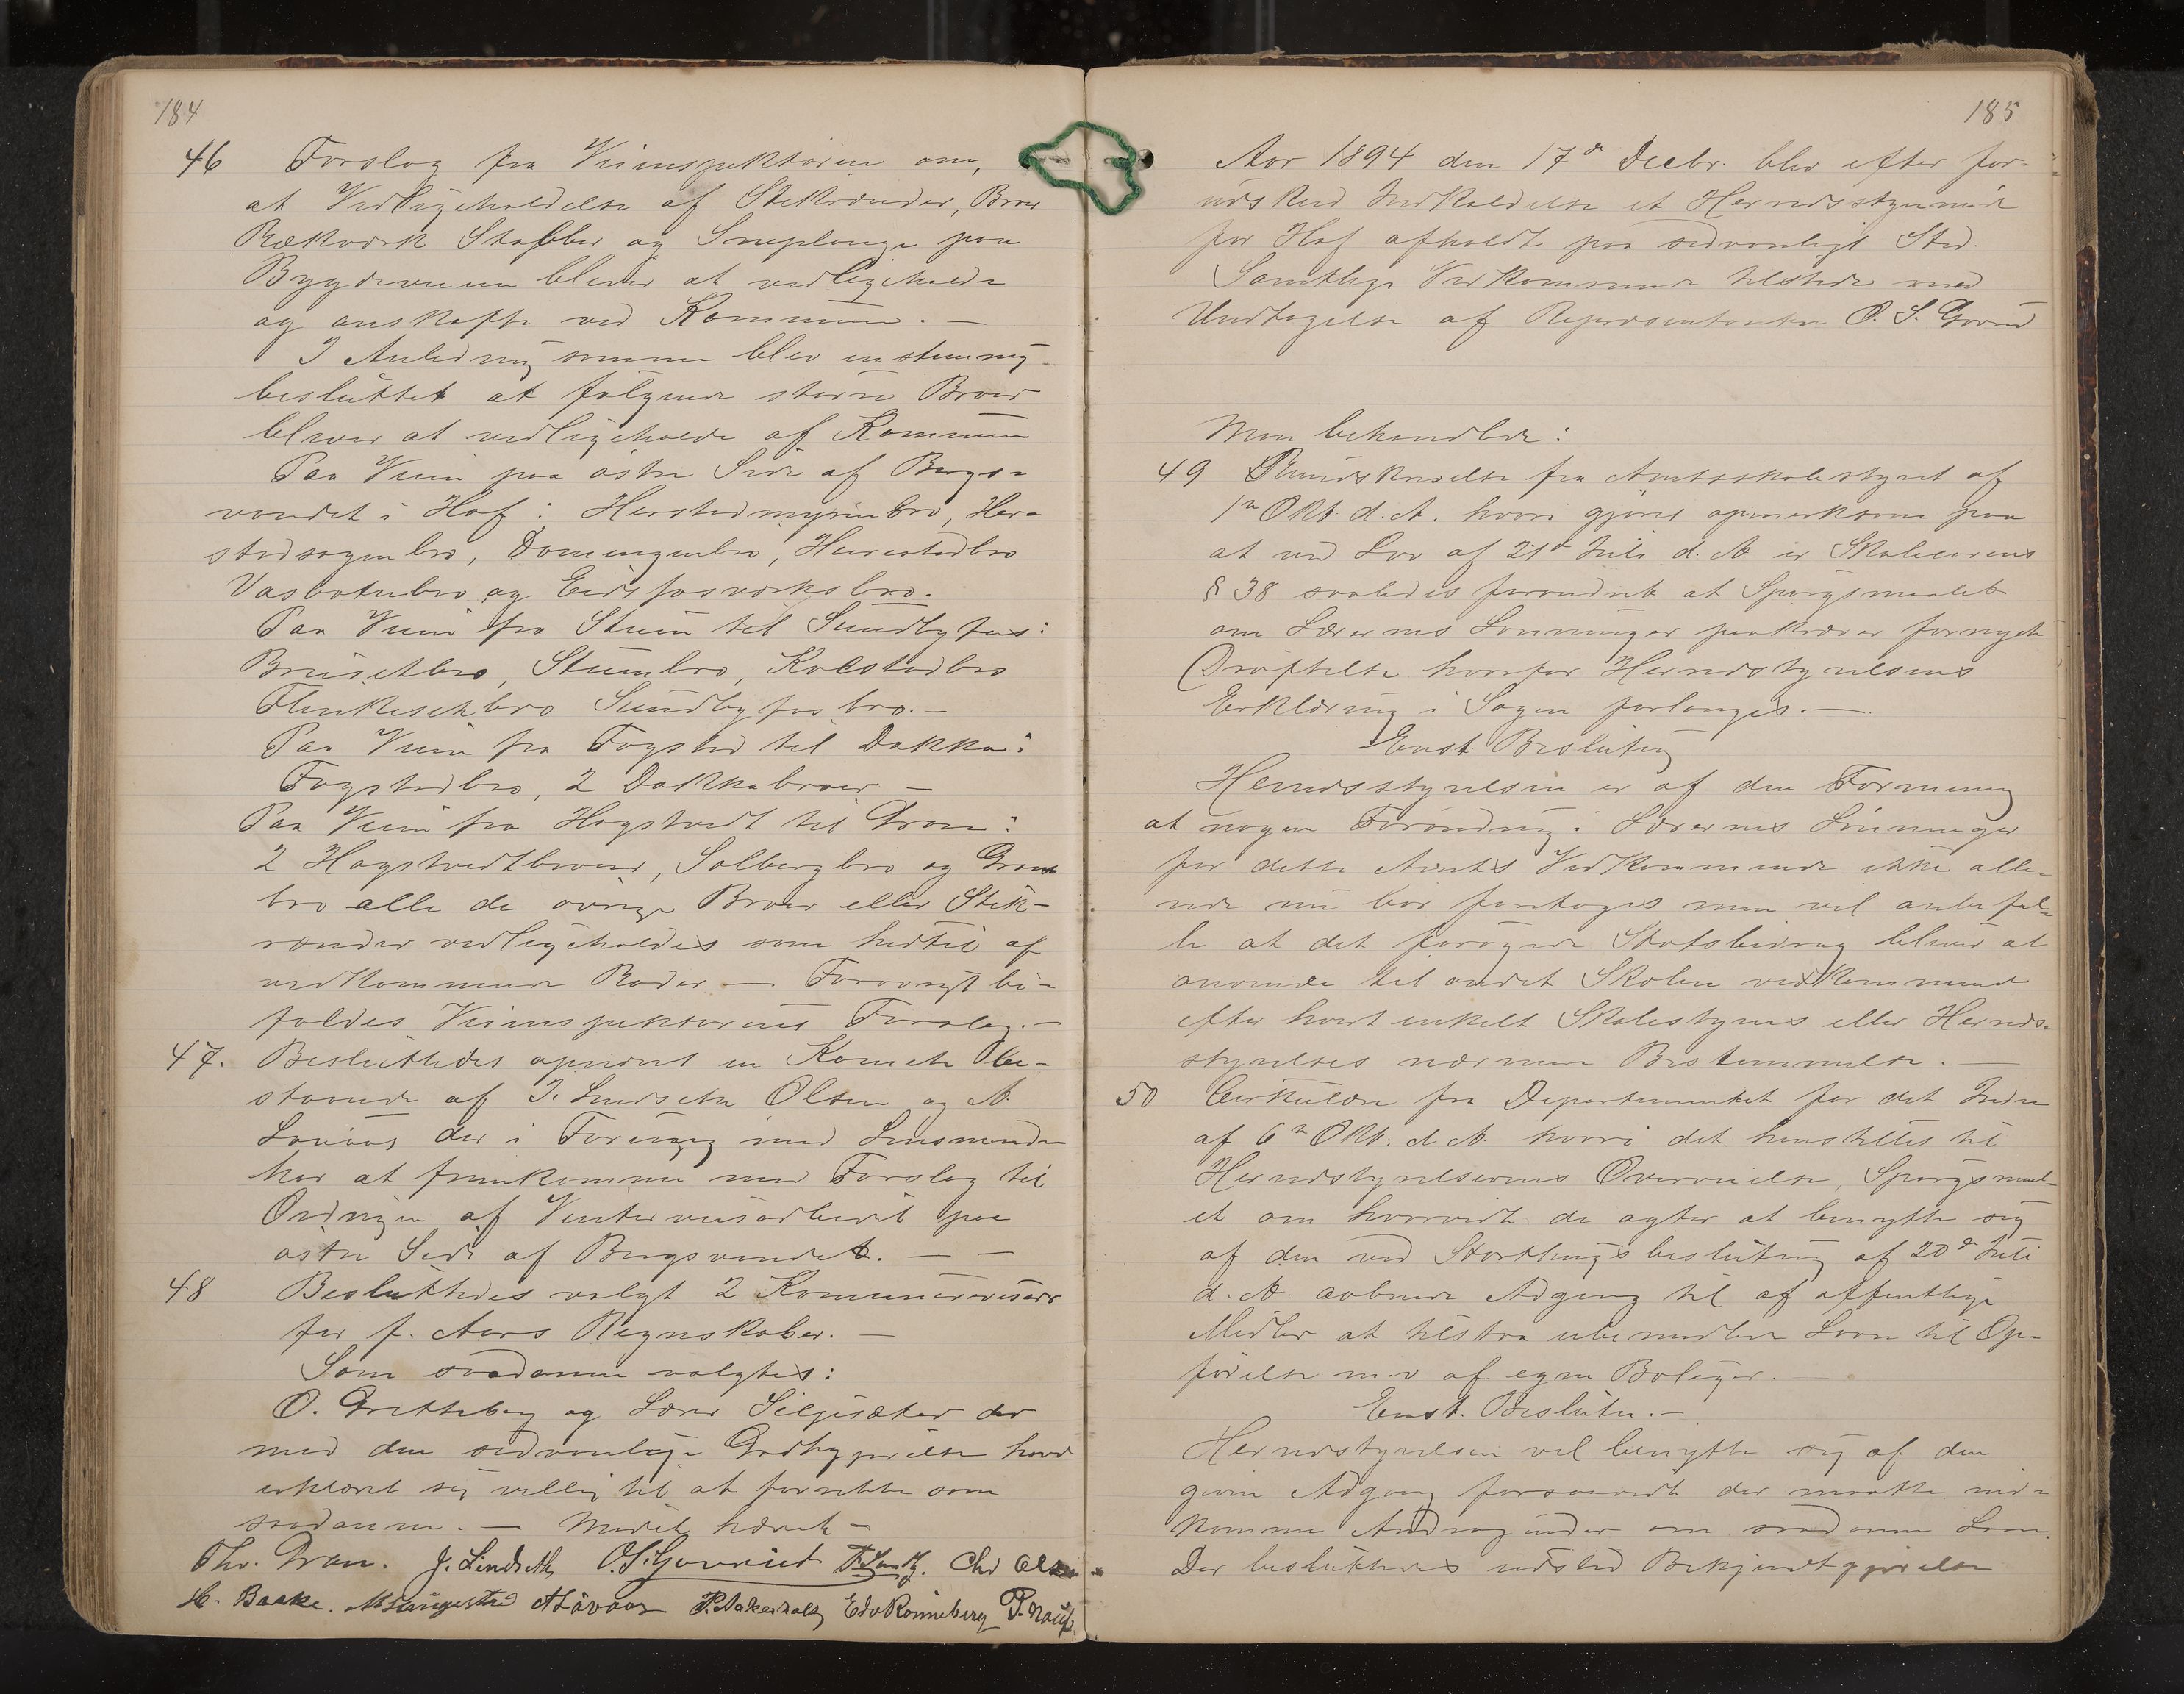 184
46 Forslag fra Veiinspektøren om,
at Vedligeholdelse af Stikrender, Broer
Rækværk Stabber og Sneplouge paa
Bygdeveiene bliver at vedligeholde
og anskaffe ved Kommunen. —
I Anledning sammen blev enstemmig
besluttet at følgende større Broer
bliver at vedligeholde af Kommunen
Paa Veien paa østre Side af Bergs-
vandet i Hof: Herstadmyrenbro, Her-
stadsagenbro, Domengenbro,
Vasbotnbro og Eidsfosværksbro.
Paa Veien fra Steen til Sundbyfos:
Bruserbro, Steenbro, Kolstadbro
Sundbyfosbro. —
Paa Veien fra Fogstad til Dakka:
Fogstadbro, 2 Dakkabroer —
Paa Veien fra Hagstvedt til Gran:
2 Hagstvedtbroer, Solbergbro og Gran
bro alle de øvrige Broer eller Stik-
render vedligeholdes som hidtil af
vedkommende Roder — Forøvrigt bi-
faldes Veiinspektørens Forslag. —
47. Besluttedes opnævnt en Komite be-
staaende af J. Lindseth Olsen og A.
Løvaas der i Forening med Lensmanden
har at fremkomme med Forslag til
Ordningen af Vinterveiarbeidet paa
østre Side af Bergsvandet. — —
48 Besluttedes valgt 2 Kommunerevisorer
for f. Aars Regnskaber. —
Som saadanne valgtes:
O. Gretteberg og Lærer Seljesæter der
med den sedvanlige Godtgjørelse havde
erklæret sig villig til at forrette som
saadanne. — Mødet hævet —
Thv. Gran. J. Lindseth O. S. Govried Chr Olsen
H. Baake. A Løvaas P. Aakerholt Edv Rønneberg
185
Aar 1894 den 17de Decbr. blev efter for-
udskeed Indkaldelse et Herredsstyremøde
for Hof afholdt paa sedvanligt Sted.
Samtlige Vedkommende tilstede med
Undtagelse af Repræsentanten O. S. Govried
Man behandlede:
49 Rundskrivelse fra Amtsskolestyret af
1ste Oktb. d. A. hvori gjøres opmerksom paa
at ved Lov af 21de Juli d. A er Skolelovens
§ 38 saaledes forandret at Spørgsmaalet
om Lærernes Lønninger paakræver fornyet
Drøftelse hvorfor Herredstyrelsens
Erklæring i Sagen forlanges. —
Enst. Beslutning
Herredsstyrelsen er af den Formening
at nogen Forandring i Lærernes Lønninger
for dette Amts Vedkommende ikke alle-
rede nu bør foretages men vil anbefa-
le at det forøgede Statsbidrag bliver at
anvende til andet Skolen vedkommende
efter hvert enkelt Skolestyres eller Herreds-
styrelses nærmere Bestemmelse. —
50 Cirkulære fra Departementet for det Indre
af 6te Oktb. d. A. hvori det henstilles til
Herredstyrelsernes Overveielse, Spørgsmaal-
et om hvorvidt de agter at benytte sig
af den ved Storthingsbeslutning af 20de Juli
d. A. aabnede Adgang til af offentlige
Midler at tilstaa ubemidlede Laan til Op-
førelse m.v af egne Boliger. —
Enst. Beslutn. —
Herredstyrelsen vil benytte sig af den
givne Adgang forsaavidt der maatte ind-
komme Andragender om saadanne Laan.
Der besluttedes udsted Bekjendtgjørelse